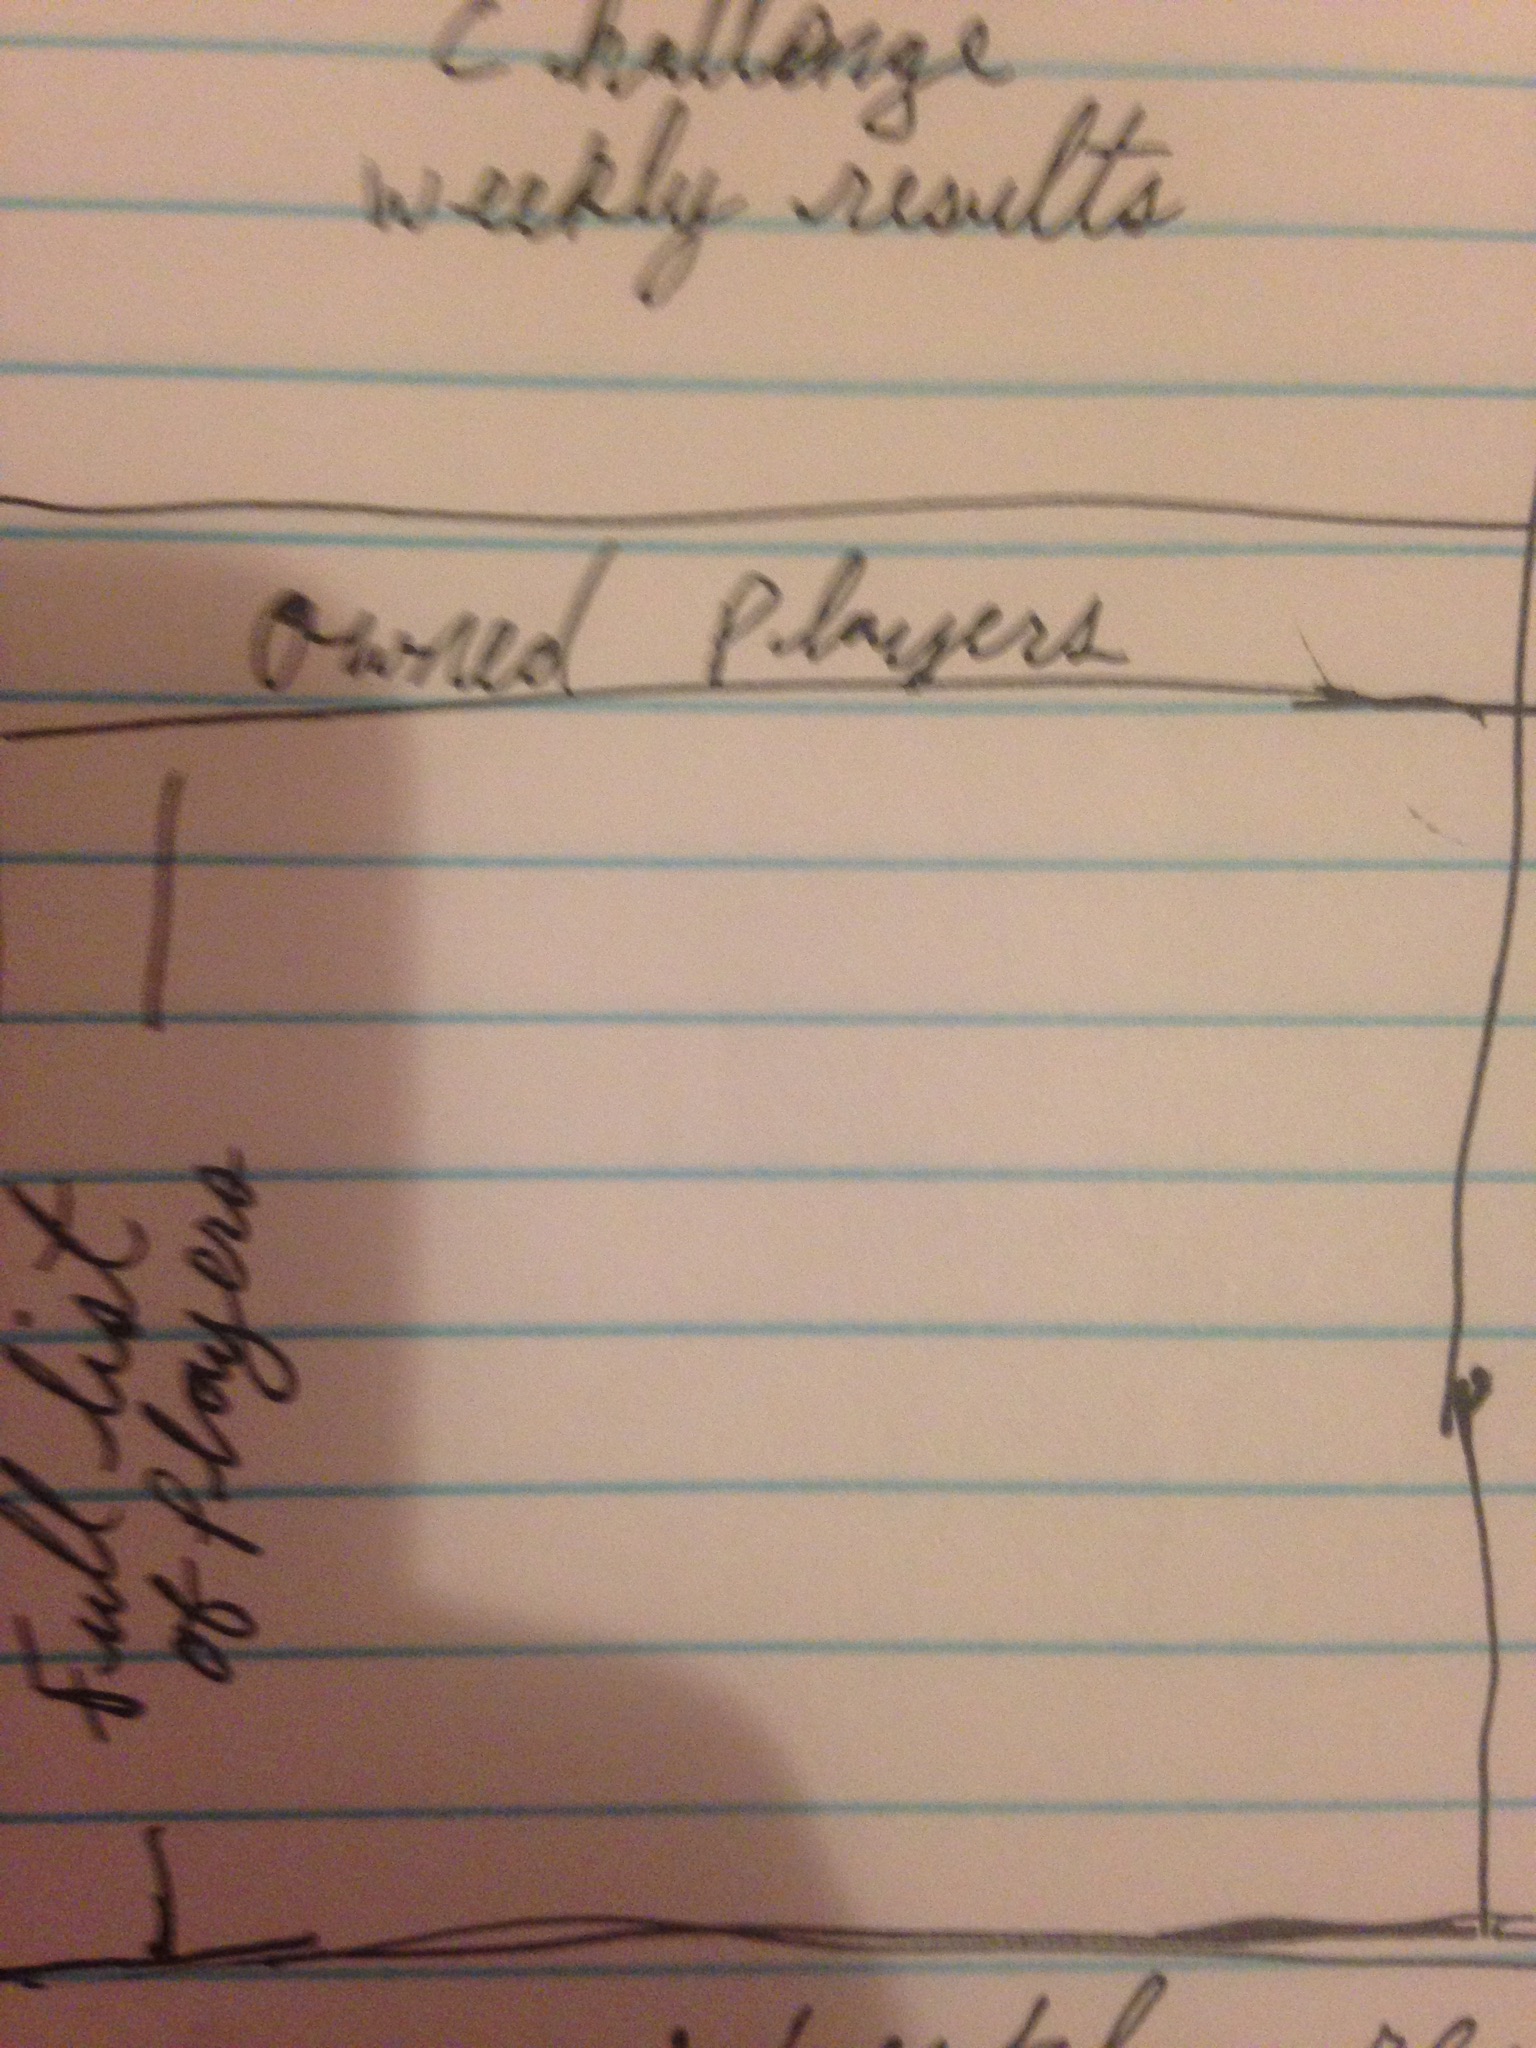 Challenge
weekly results
owned players
Full list
of players